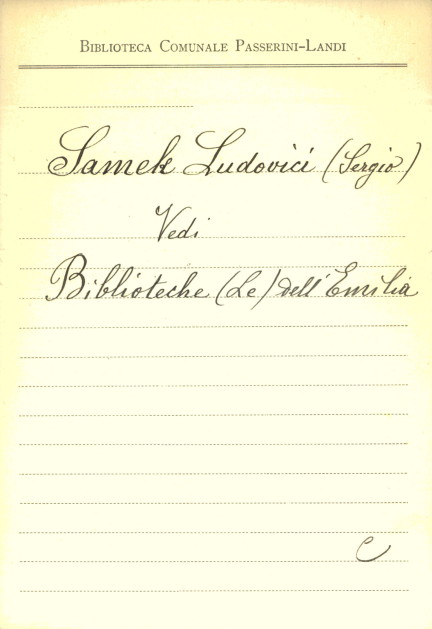 Biblioteca Comunale Passerini-Landi
Samek Ludovici (Sergio)
Vedi
Biblioteche (Le) dell'Emilia
C